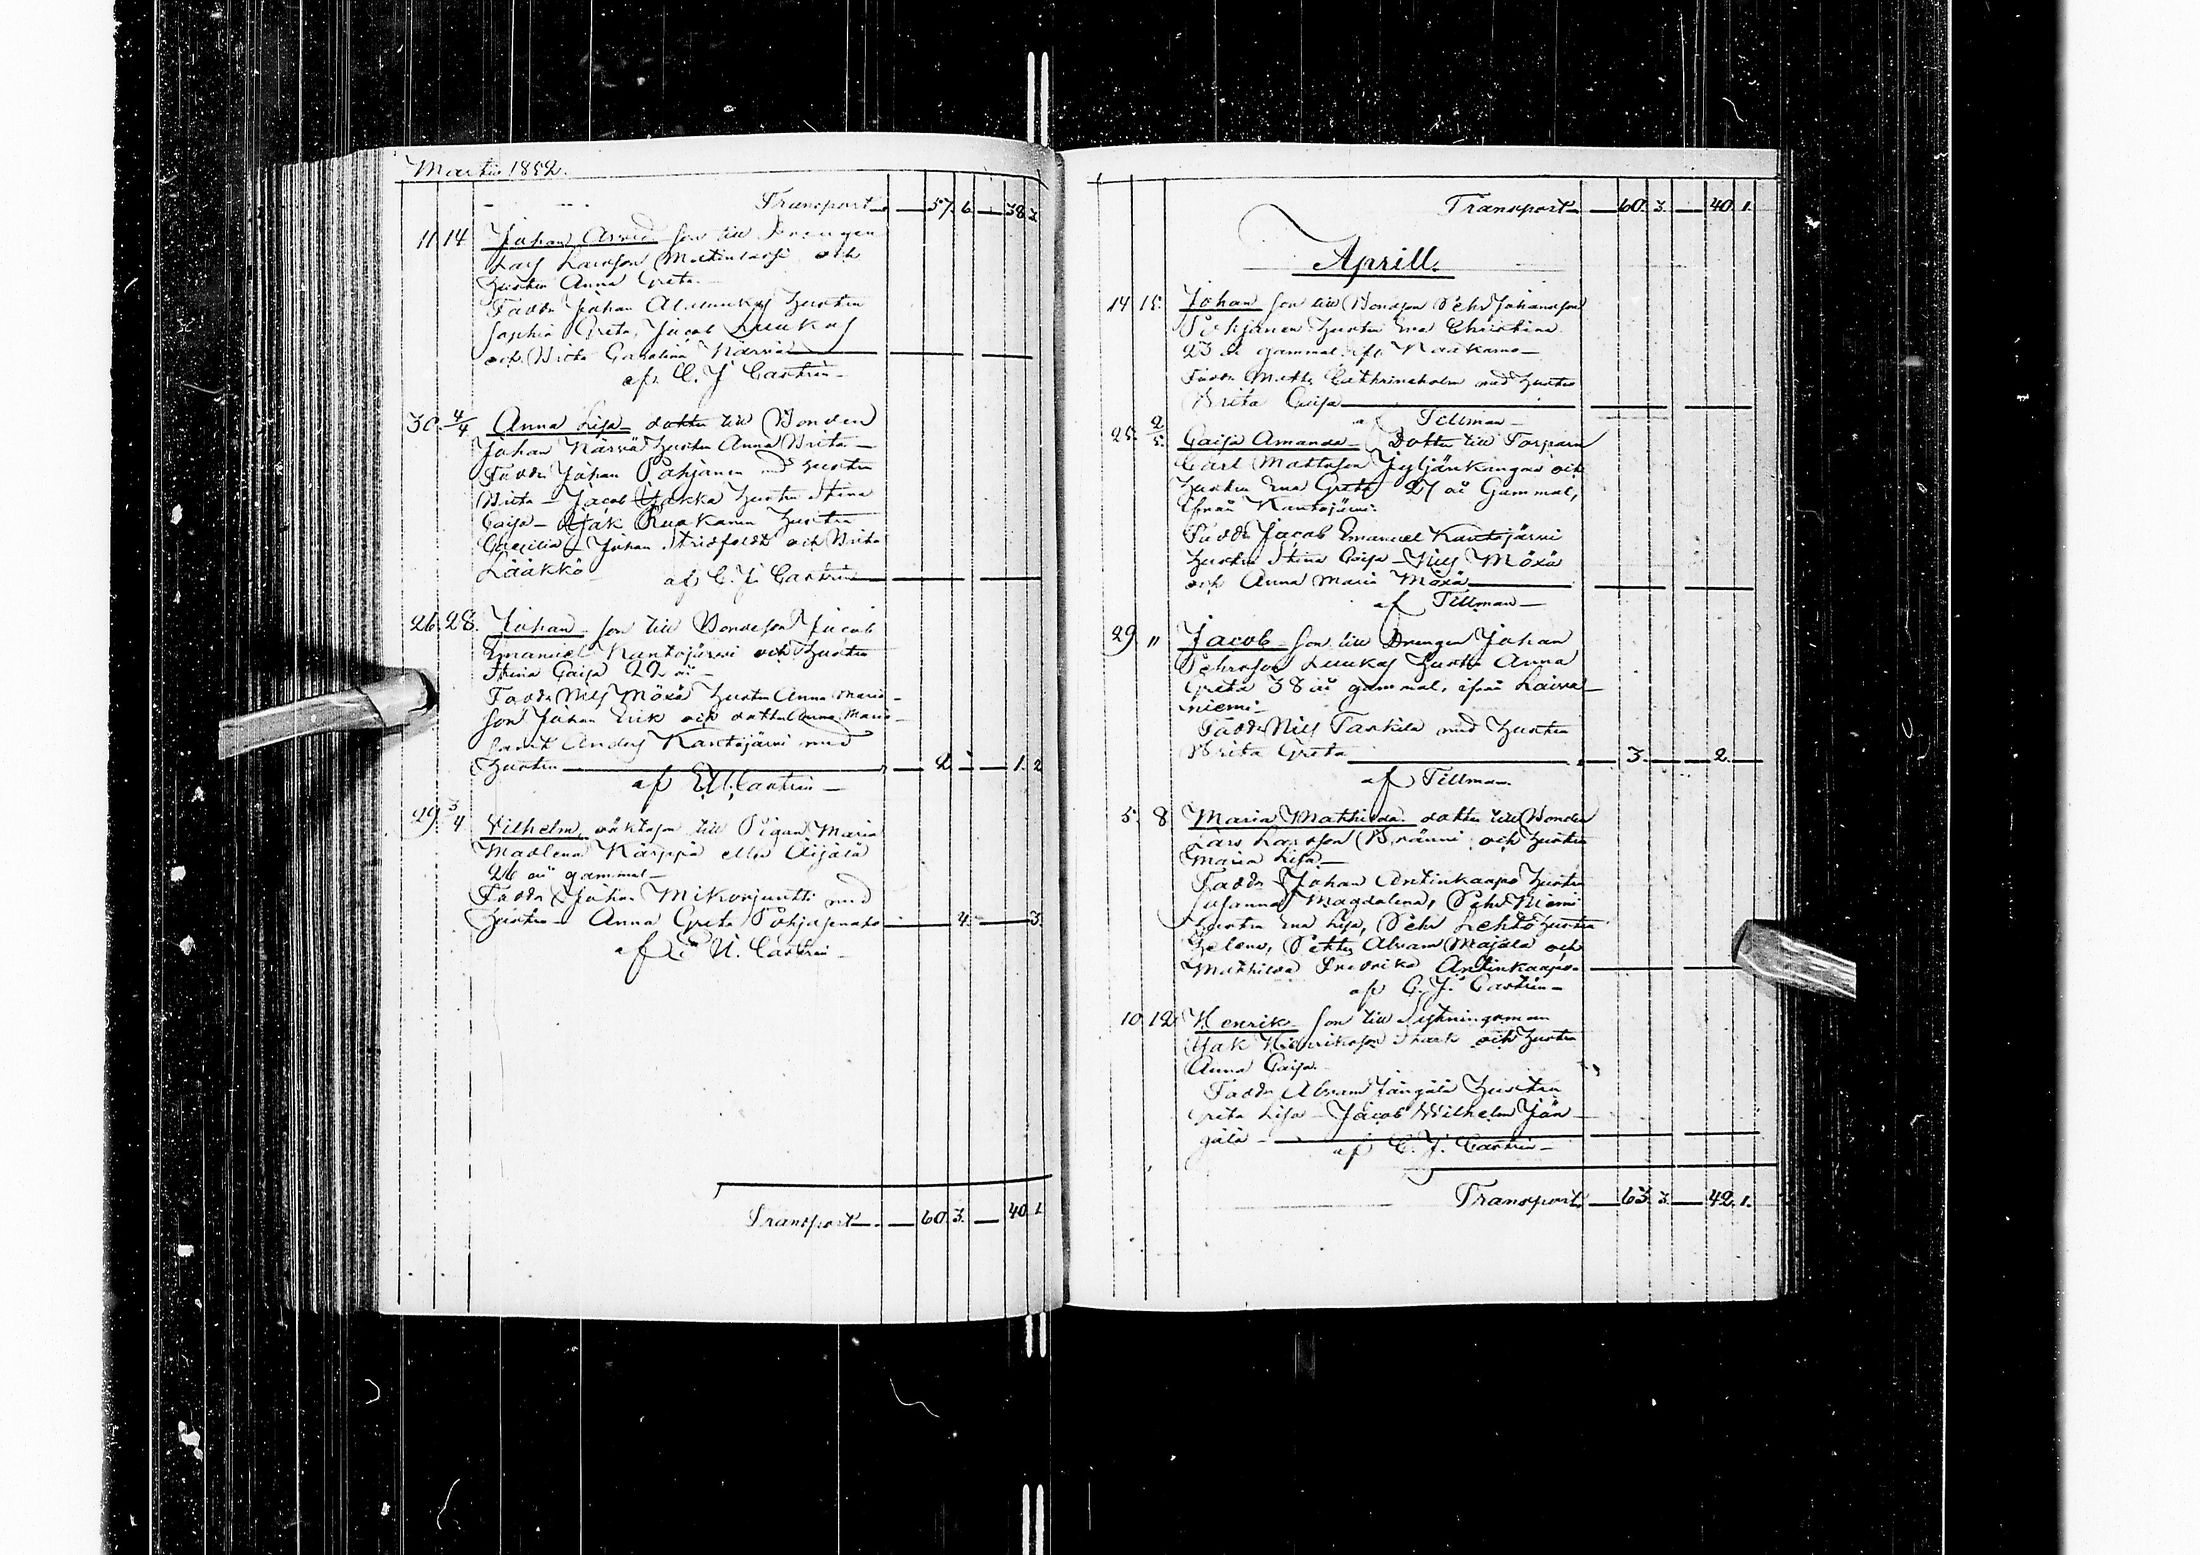 Martii 1852.
Transport — 57. 6. — 38. 3.
11. 14 Johan Arvid son till Drengen
Lars Larsson och
Hustru Anna Greta.
Fadd: Johan Hustru
Sophia Greta, Jacob Luukas
och Brita Carolina Närvä
af C. J. Castrén
30. 4/4 Anna Lisa dotter till Bonden
Johan Närvä Hustru Anna Brita
Fadd: Johan Pahjanen med Hustru
Brita — Jacob Hustru Stina
Caisa — Isak Ruokanen Hustru
Caecilia — Johan och Brita
Lääkkö af C. J. Castrén
26. 28. Johan son till Bondeson Jacob
Emanuel Kantojärvi och Hustru
Stina Caisa 22 år
Fadd: Nils Möxä Hustru Anna Maria
son Johan Erik och dotter Anna Maria
samt Anders Kantojärvi med
Hustru — 2. — 1. 2
af Castrén
29. 3/4 Vilhelm, oäkta son till Pigan Maria
Madlena Kärppä eller Äijälä
26 år gammal
Fadd: Johan Mikonjuntti med
Hustru — Anna Greta — 4. — 3.
af Castrén
Transport — 60. 3. — 40. 1
Transport — 60. 3. — 40. 1.
Aprill.
14 15. Johan son till Bondson Pehr Johansson
Hustru Eva Christina
23 år gammal, ifr. Naakamo
Fadd: Matts Cathrineholm med Hustru
Brita Caisa
af Tillman
25. 2/5. Caisa Amanda Dotter till Torparn
Carl Mattsson Jyljänkangas och
Hustru Eva Greta 27 år Gammal,
ifrån Kantojärvi.
Fadd: Jacob Emanuel Kantojärvi
Hustru Stina Caisa — Nils Möxä
och Anna Maria Möxä
af Tillman
29. " Jacob son till Drengen Johan
Pehrsson Luukas Hustru Anna
Greta 38 år gammal, ifrån Laiva-
niemi
Fadd: Nils Taskila med Hustru
Brita Greta — 3. — 2.
af Tillman.
5. 8 Maria Mathilda dotter till Bonden
Lars Larsson Bränni och Hustru
Maria Lisa
Fadd: Johan Antinkaapo Hustru
Susanna Magdalena, Pehr Niemi
Hustru Eva Lisa, Pehr Lehto Hustru
Helena, Petter Abram Majala och
Mathilda Fredrika Antinkaapo
af C. J. Castrén
10. 12. Henrik son till
Isak Henriksson Stark och Hustru
Anna Caisa
Fadd: Abram Jängälä Hustru
Greta Lisa — Jacob Wilhelm Jän-
gälä
af C. J. Castrén
Transport — 63. 3. — 42. 1.